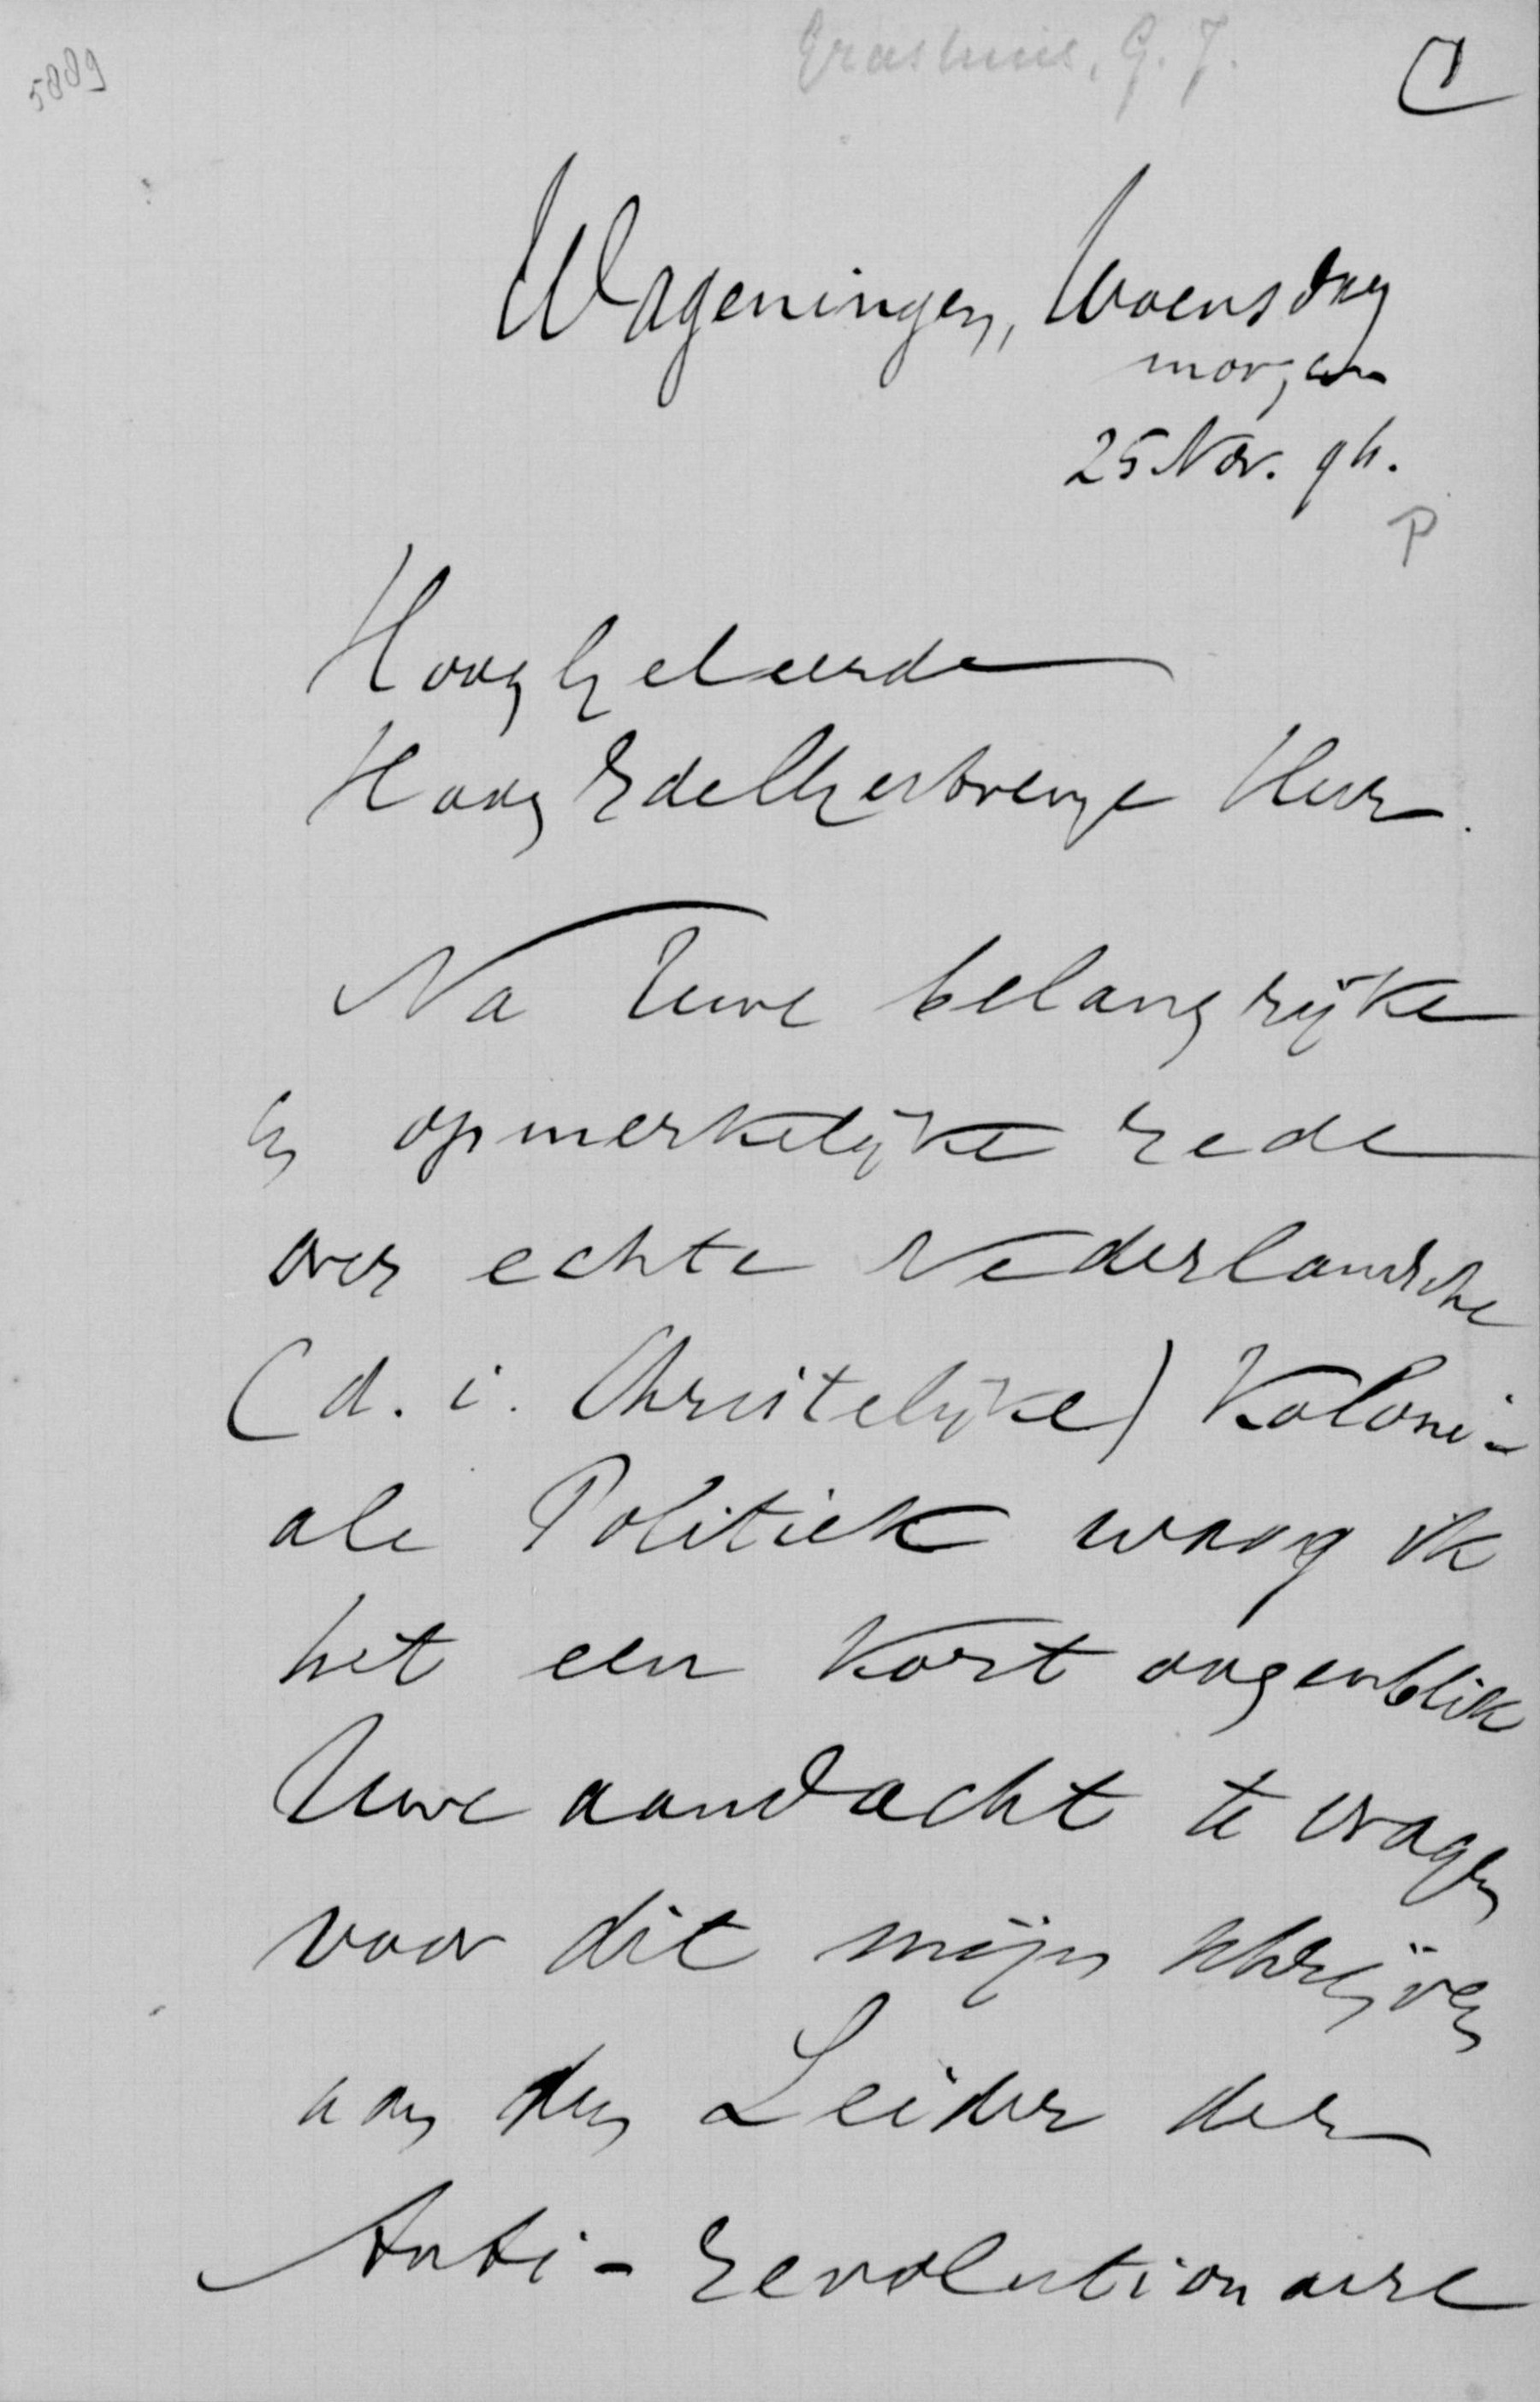 5889
Grashuis, G. J.
Wageningen, Woensdag
morgen
25 Nov. 96.
P
Hooggeleerde
HoogEdelgestrenge Heer.
Na Uwe belangrijke
en opmerkelijke rede
over echte Nederlandsche
(d. i. Christelijke) Koloni-
ale Politiek waag ik
het een kort oogenblik
Uwe aandacht te vragen
voor dit mijn schrijven
aan den Leider der
Anti-revolutionaire